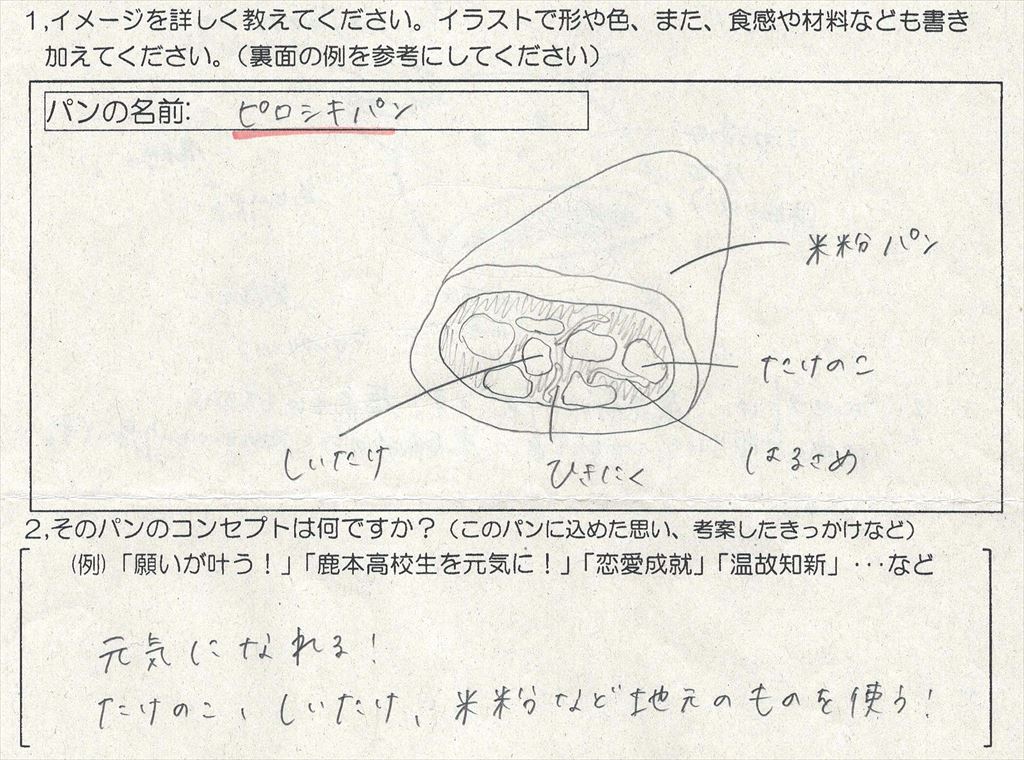 1,イメージを詳しく教えてください。イラストで形や色、また、食感や材料なども書き
加えてください。（裏面の例を参考にしてください）
パンの名前: ピロシキパン
米粉パン
たけのこ
しいたけ
ひきにく
はるさめ
2,そのパンのコンセプトは何ですか？（このパンに込めた思い、考案したきっかけなど）
(例)「願いが叶う！」「鹿本高校生を元気に！」「恋愛成就」「温故知新」･･･など
元気になれる！
たけのこ、しいたけ、米粉など地元のものを使う！